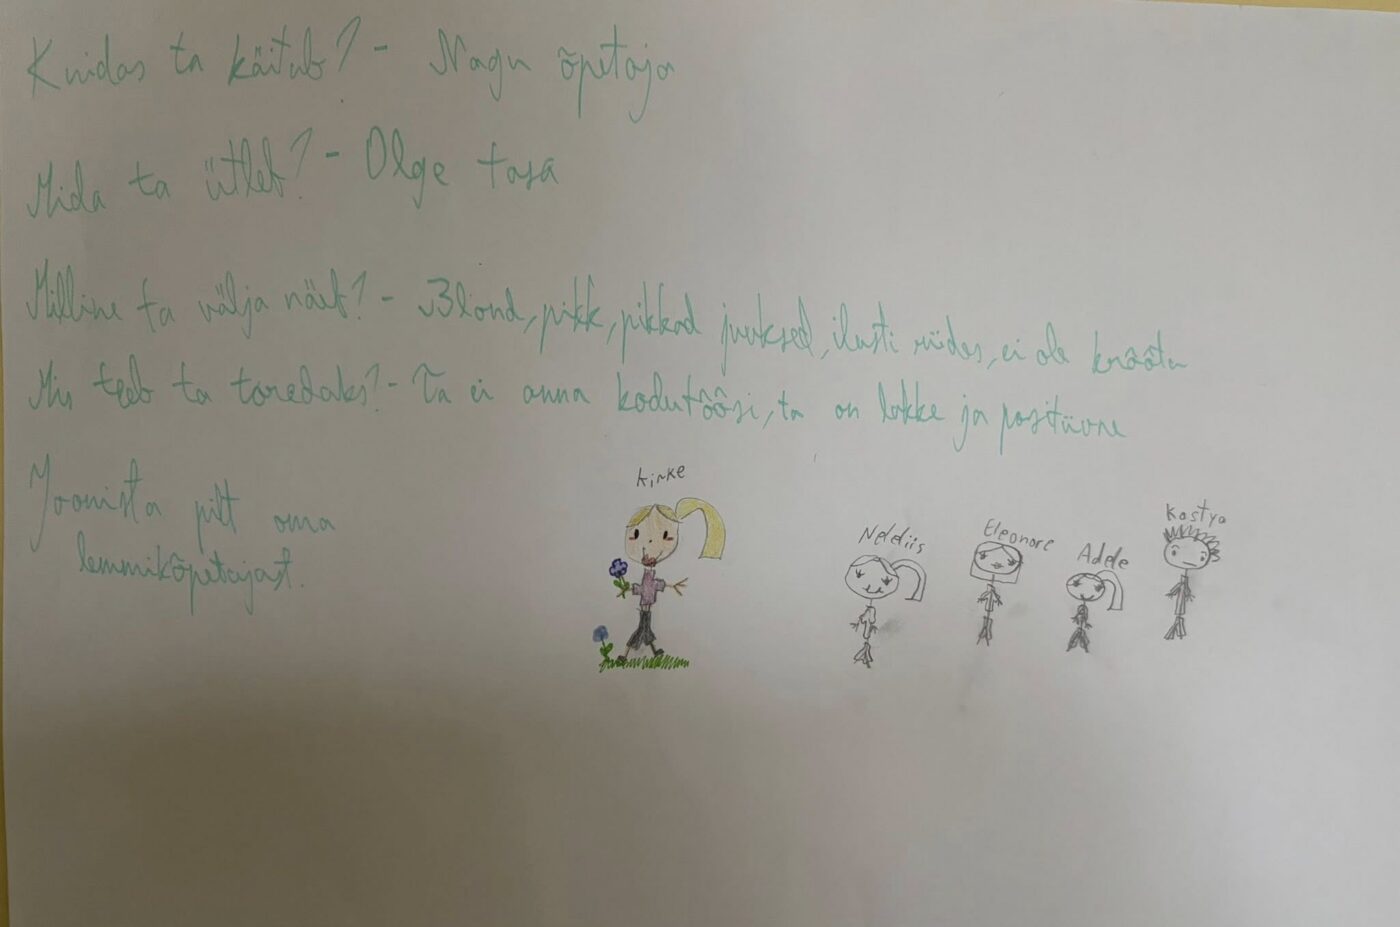 Kuidas ta käitub? - Nagu õpetaja
Mida ta ütleb? - Olge tasa
Milline ta välja näeb? - Blond, pikk, pikkad juuksed, ilusti riides, ei ole krõõta
Mis teeb ta toredaks? - Ta ei anna kodutõõsi, ta on lakke ja positiivne
Joonista pilt oma
lemmikõpetajast.
Kirke
Neldiis
Eleonore
Adele
Kostya